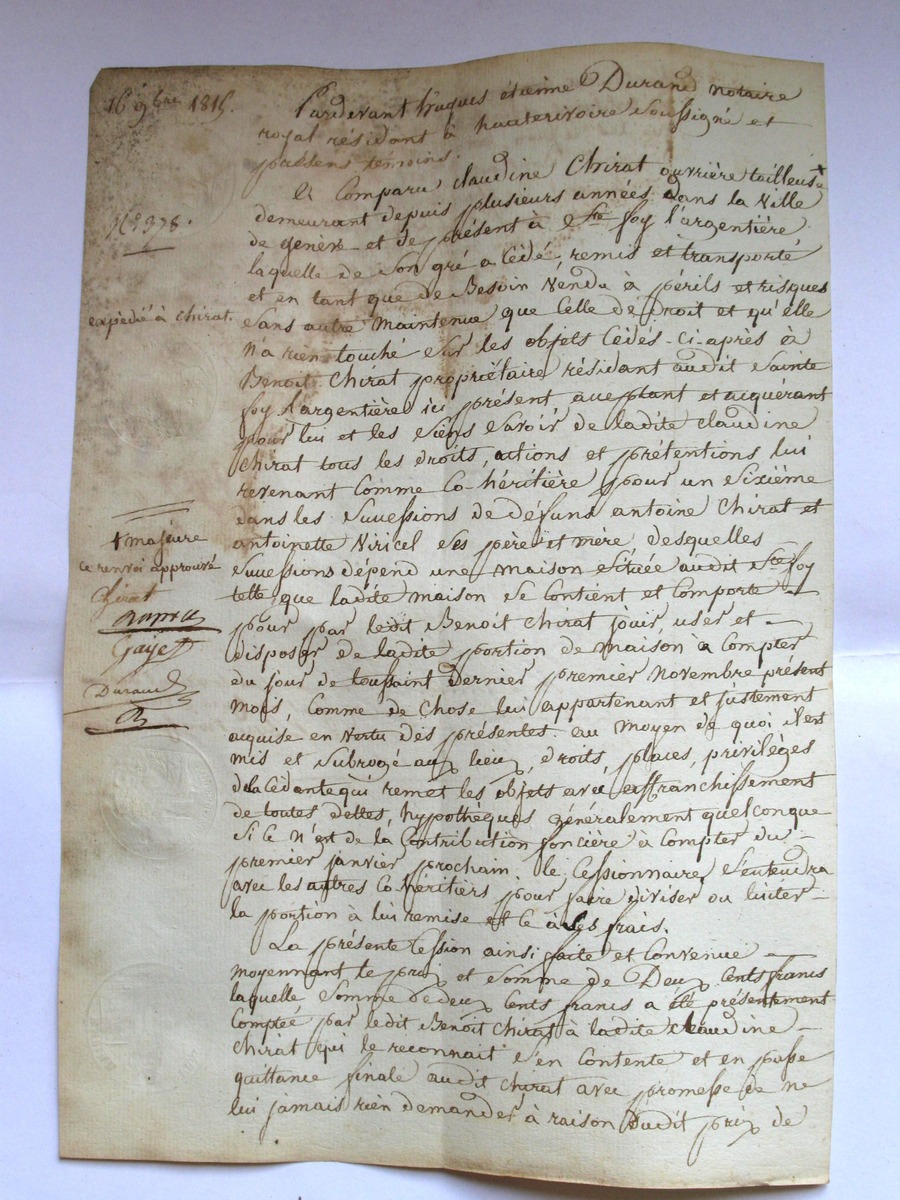 16 9bre 1815.
Pardevant hugues étienne Durand notaire
royal résidant à hauterivoire Soussigné et
présens témoins.
N.º 378.
expédié à Chirat.
+ majeure
ce renvoi approuvé
Chirat
Gayet
Durand
a Comparu Claudine Chirat ouvrière tailleuse +
demeurant depuis plusieurs années dans la Ville
de genève et de présent à Ste foy l'argentière
laquelle de Son gré a Cédé, remis et transporté
et en tant que de Besoin Vendu à périls et risques
Sans autre Maintenue que Celle de Droit et qu'elle
n'a rien touché Sur les objets Cédés ci-après à
Benoit Chirat propriétaire résidant audit Sainte
foy l'argentière ici présent acceptant et acquérant
pour lui et les Siens Savoir de ladite Claudine
Chirat tous les droits, actions et prétentions lui
revenant Comme Co-héritière pour un Sixième
dans les Successions de défuns antoine Chirat et
antoinette Viricel Ses père et mère desquelles
Successions dépend une maison Située audit Ste foy
telle que ladite maison Se Contient et Comporte
pour par ledit Benoit Chirat jouir user et
disposer de ladite portion de maison à Compter
du jour de toussaint dernier premier Novembre présent
mois, Comme de Chose lui appartenant et justement
acquise en Vertu des présentes. au moyen de quoi il est
mis et Subrogé aux lieux, droits, places, privilèges
de la Cédante qui remet les objets avec affranchissement
de toutes dettes, hypothèques généralement quelconque
Si ce n'est de la Contribution foncière à Compter du
premier janvier prochain. le Cessionnaire S'entendra
avec les autres Co-héritiers pour faire diviser ou liciter
la portion à lui remise et ce à Ses frais.
La présente Cession ainsi faite et Convenue
moyennant le prix et Somme de Deux Cents francs
laquelle Somme de deux Cents francs a été présentement
Comptée par ledit Benoit Chirat à ladite Claudine
Chirat qui le reconnait S'en Contente et en passe
quittance finale audit Chirat avec promesse de ne
lui jamais rien demander à raison dudit prix de